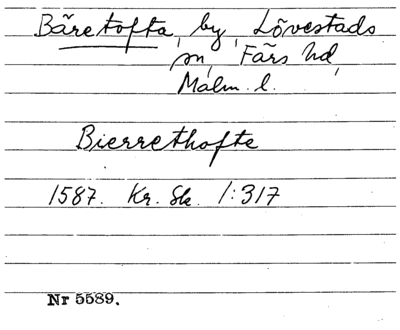 Bäretofta, by, Lövestads
sn, Färs hd,
Malm. l.
Bierrethofte
1587. Kr. Sk. 1:317
Nr 5589.